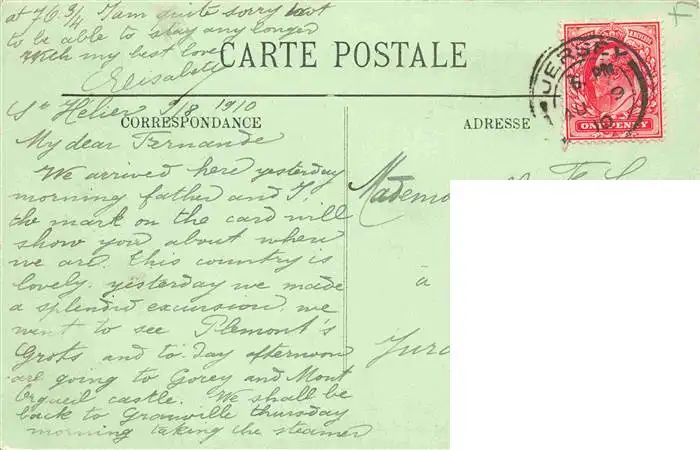 at 7h 3/4 I am quite sorry not
to be able to stay any longer
With my best love
Elisabeth
CARTE POSTALE
JERSEY
ONE PENNY
St Hélier 9/8 1910
CORRESPONDANCE
ADRESSE
My dear Fernande
We arrived here yesterday
morning father and I,
the mark on the card will
show you about where
we are. This country is
lovely. yesterday we made
a splendid excursion we
went to see Plemont's
Grots and to day afternoon
are going to Gorey and Mont
Orgueil castle. We shall be
back to Granville thursday
morning taking the steamer
Mademo
à